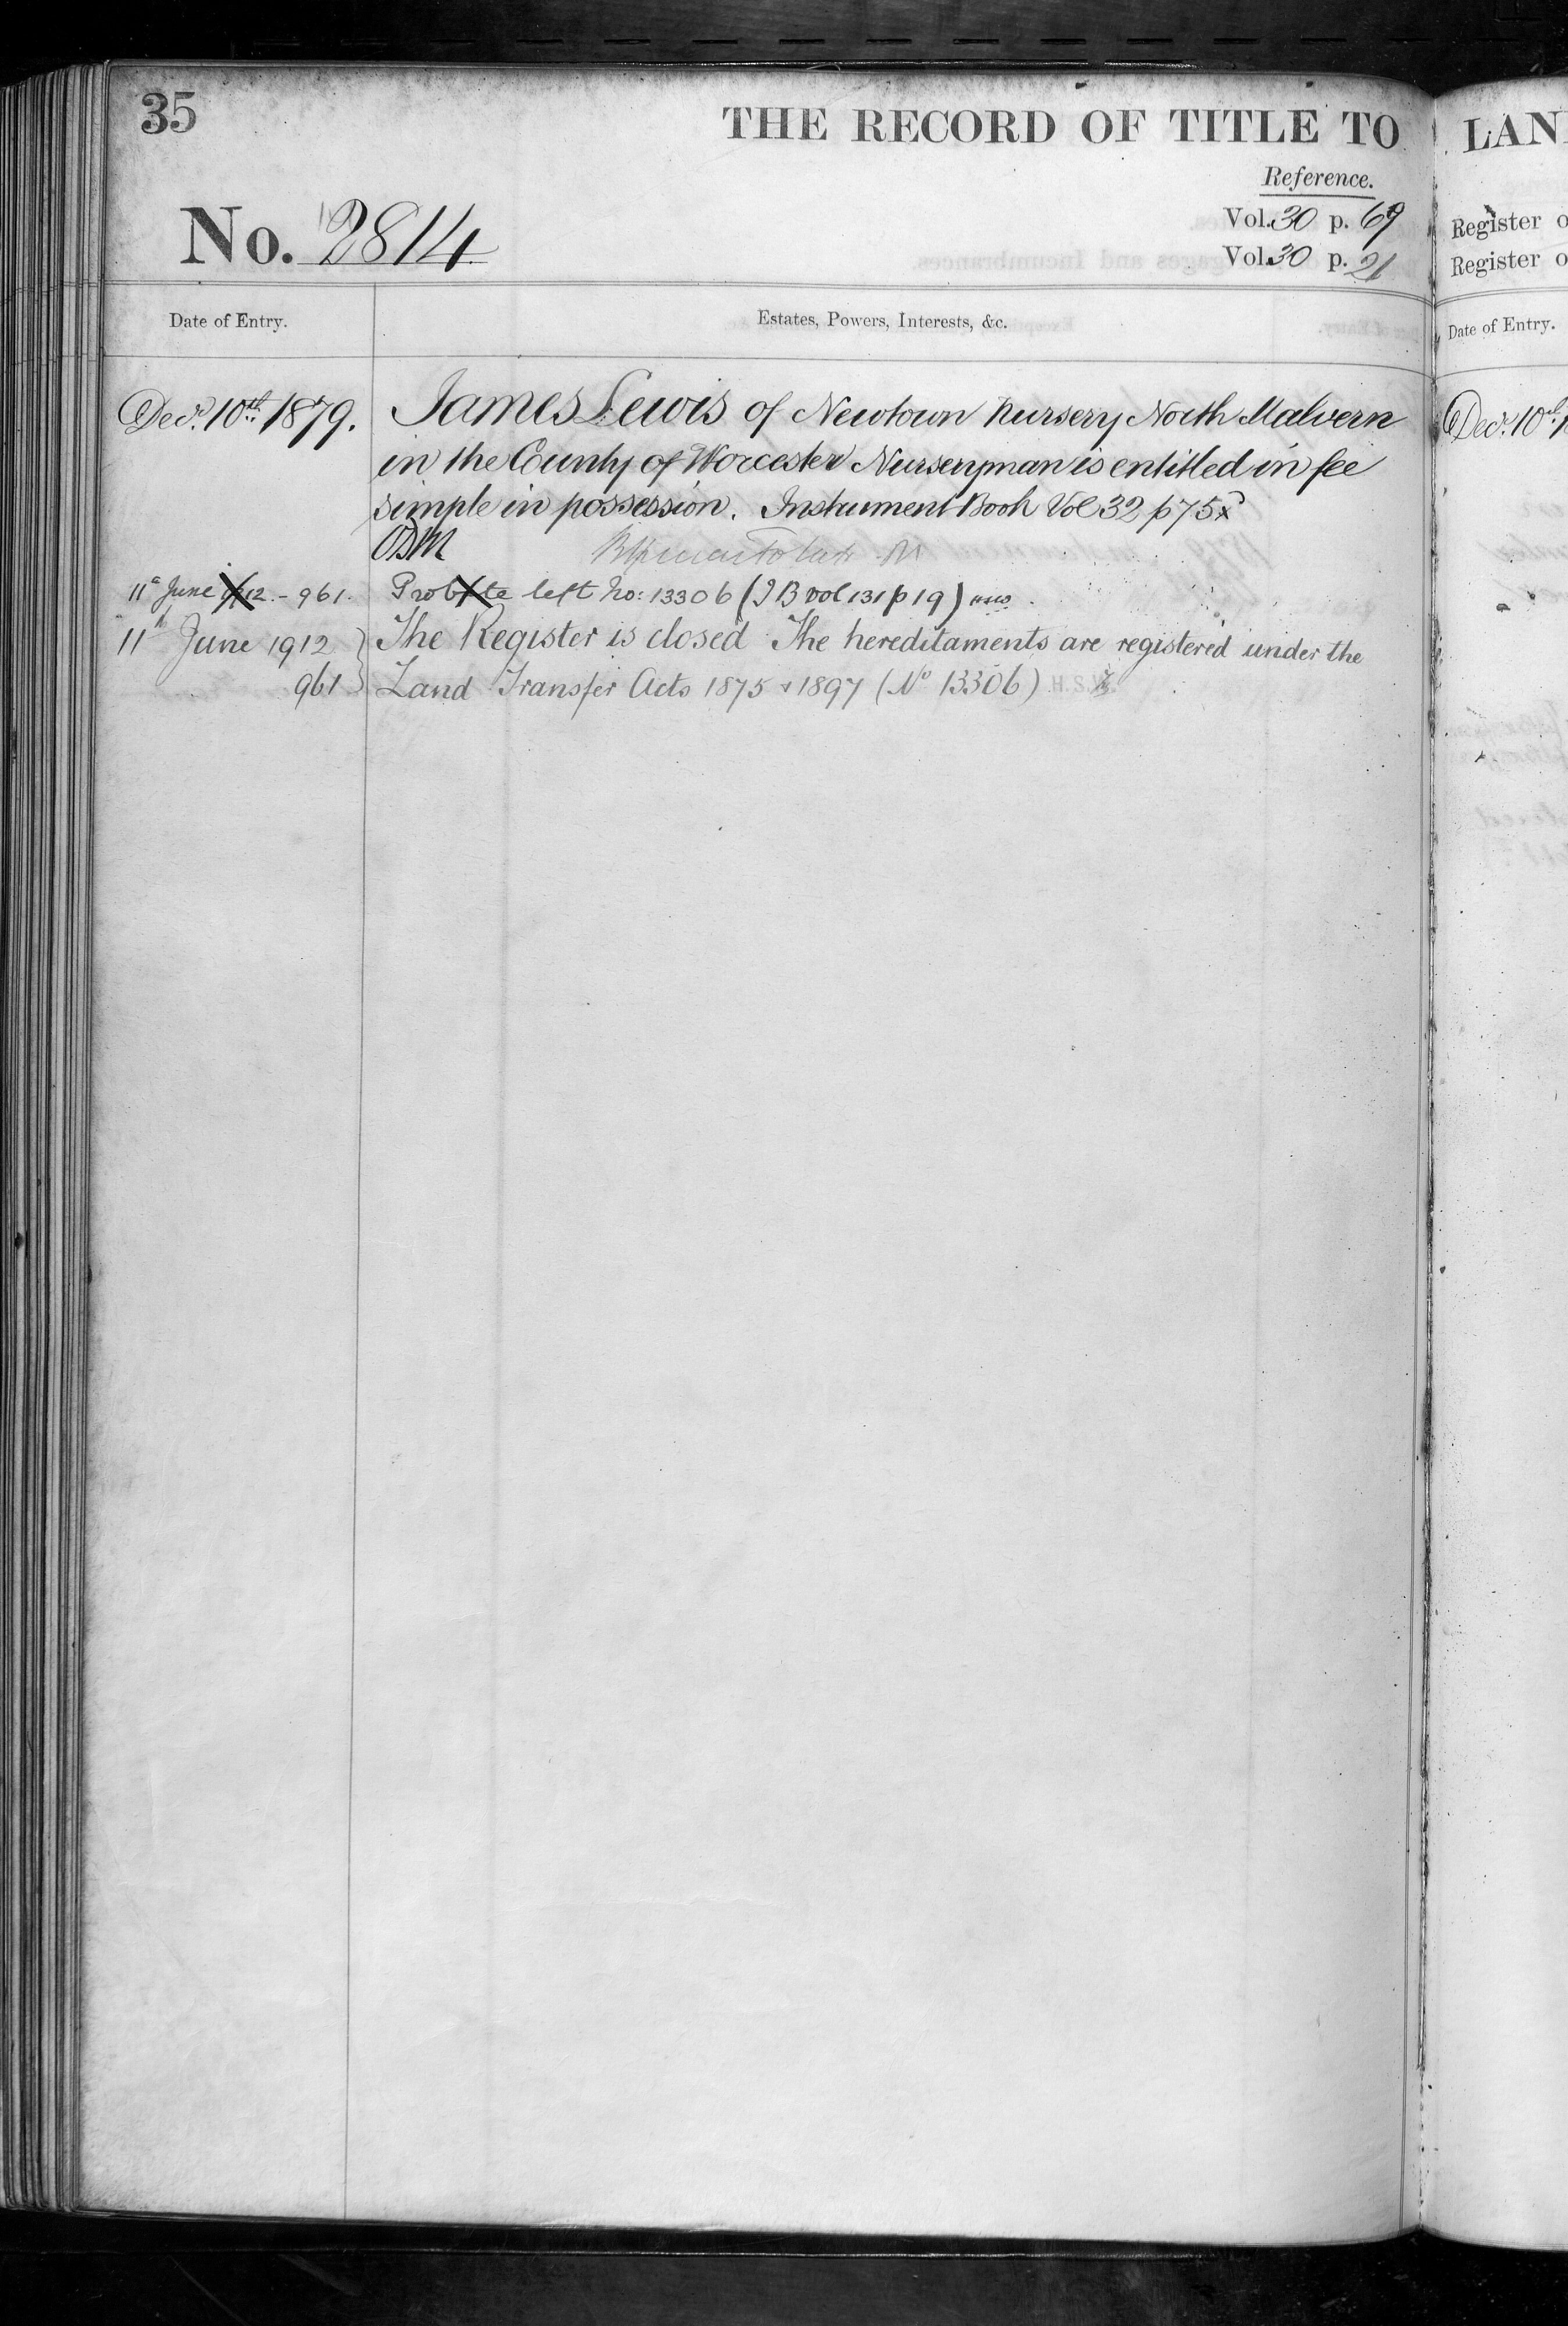 35
THE RECORD OF TITLE TO LAN
Reference.
No. 2814
Vol. 30 p. 69
Vol. 30 p. 21
Register o
Register o
Date of Entry.
Estates, Powers, Interests, &c.
Date of Entry.
Decr. 10th 1879.
James Lewis of Newtown Nursery North Malvern
in the County of Worcester Nurseryman is entitled in fee
simple in possession. Instrument Book Vol 32 p 75
11 June 1912 - 961.
Probate left No: 13306 (IB vol 131 p 19)
11th June 1912
961
The Register is closed The hereditaments are registered under the
Land Transfer Acts 1875 & 1897 (No 13306) H.S.
Decr. 10th 1